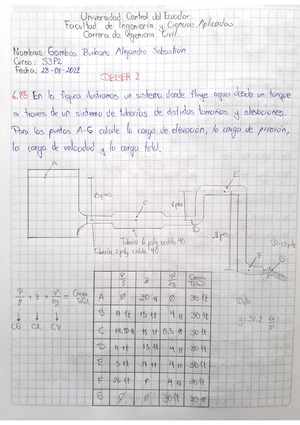 Universidad Central del Ecuador
Facultad de Ingeniería y Ciencias Aplicadas
Carrera de Ingeniería Civil
Nombres: Gamboa Burbano Alejandro Sebastián
Curso: S3P2
Fecha: 23-08-2022
DEBER 2
6.85 En la figura ilustramos un sistema donde fluye agua desde un tanque
a traves de un sistema de tuberías de distintos tamaños y elevaciones.
Para los puntos A-G calcule la carga de elevación, la carga de presión,
la carga de velocidad y la carga total.
A
15 pies
B
C
6 pies
D
E
F
G
Tubería 6 pulg cédula 40
Tubería 2 pulg cédula 40
P/γ + z + V²/2g = Carga Total
CE CP CV
P/γ z V²/2g Carga Total
A Ø 30 ft Ø 30 ft
B 11 ft 15 ft 4 ft 30 ft
C 15 ft 0.5 ft 30 ft
D 11 ft 15 ft 4 ft 30 ft
E 4 ft 30 ft
F 26 ft 4 ft 30 ft
G Ø Ø 30 ft 30 ft
g=32.2 ft/s²